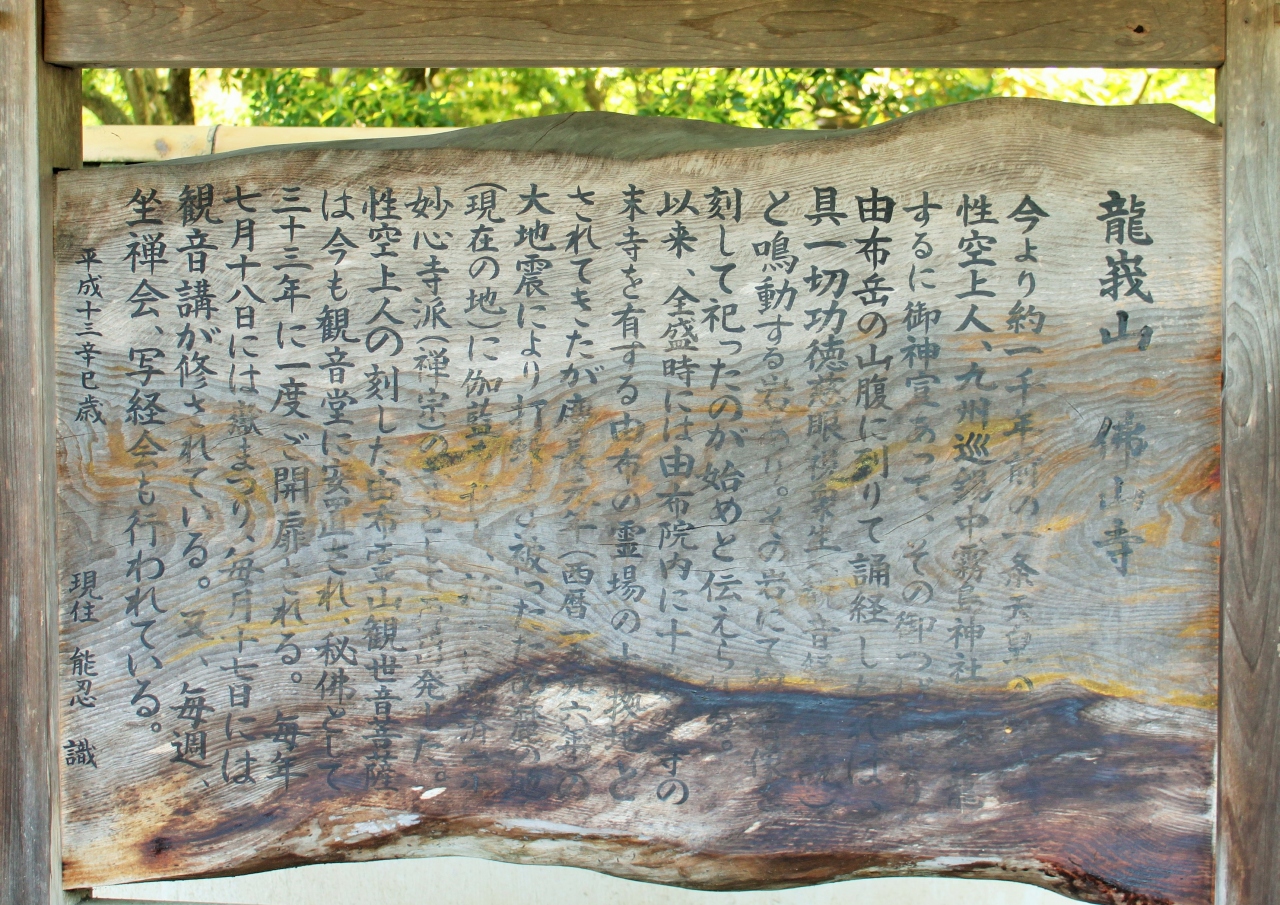 龍峩山 佛山寺
今より約一千年前の一条天皇の
性空上人、九州巡錫中霧島神社
するに御神宣あって、その御つ
由布岳の山腹に到りて誦経し は、
具一切功徳慈眼視衆生 観音
と鳴動する岩あり。その岩にて
刻して祀ったのが始めと伝えら る。
以来、全盛時には由布院内に十 寺の
末寺を有する由布の霊場の 拠地と
されてきたが慶長元年(西暦一 九六年の
大地震により打撃を被ったため の地
(現在の地)に伽藍を
妙心寺派(禅宗)の として 発した。
性空上人の刻した由布霊山観世音菩薩
は今も観音堂に安置され、秘佛として
三十三年に一度ご開扉される。毎年
七月十八日には嶽まつり、毎月十七日には
観音講が修されている。又、毎週、
坐禅会、写経会も行われている。
平成十三辛巳歳
現住 能忍 識